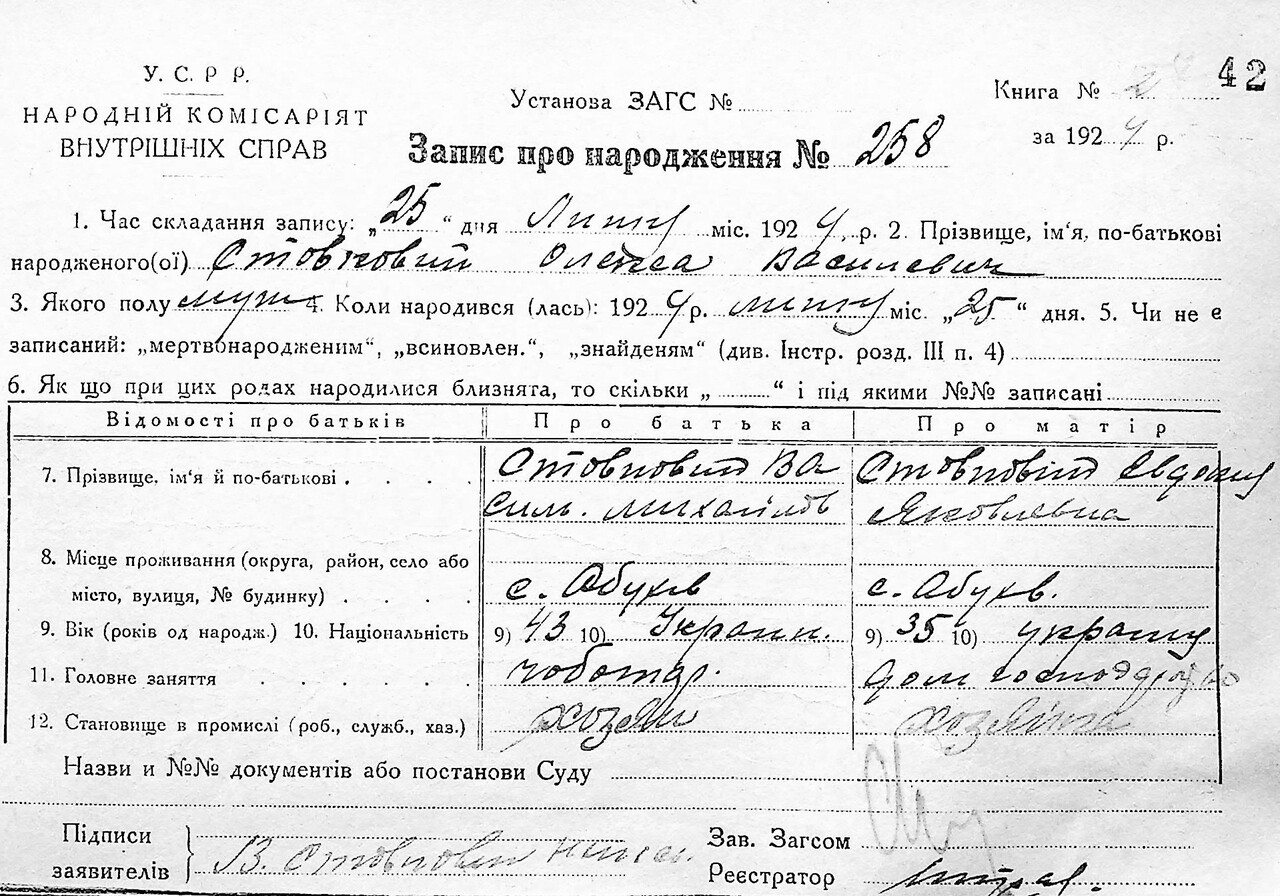 42
У. С. Р Р.
НАРОДНІЙ КОМІСАРІЯТ
ВНУТРІШНІХ СПРАВ
Установа ЗАГС №
Книга № 2
за 1924 р.
Запис про народження № 258
1. Час складання запису: „25“ дня Люту міс. 1924, р. 2. Прізвище, ім'я, по-батькові
народженого(ої) Стовповий Олекса Василевич
3. Якого полу муж 4. Коли народився (лась): 1924 р. люту міс. „25“ дня. 5. Чи не є
записаний: „мертвонародженим“, „всиновлен.“, „знайденям“ (див. Інстр. розд. III п. 4)
6. Як що при цих родах народилися близнята, то скільки „ “ і під якими №№ записані
Відомості про батьків Про батька Про матір
7. Прізвище, ім'я й по-батькові . . . . Стовповий Ва Стовповій Євдокия
силь. Михайлов Яковлевна
8. Місце проживання (округа, район, село або
місто, вулиця, № будинку) . . . . с. Обухів с. Обухв.
9. Вік (років од народж.) 10. Національність 9) 43 10) Украин. 9) 35 10)
11. Головне заняття . . . . . . чоботар. дом господарство
12. Становище в промислі (роб., служб., хаз.) хозяин хозяінка
Назви и №№ документів або постанови Суду
Підписи
заявителів } В. Стовповий
Зав. Загсом
Реєстратор